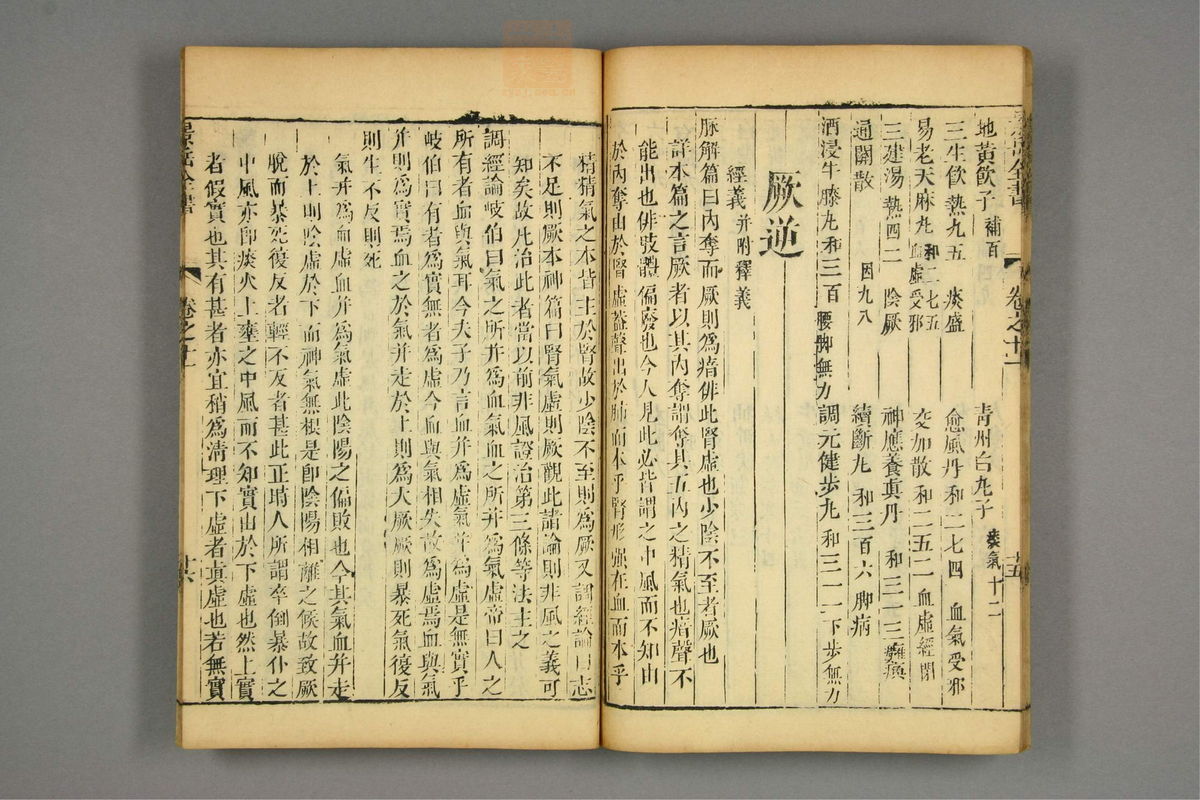 景岳全書 卷之十一 廿五
地黃飲子 補百 青州白丸子 痰氣 十二
三生飲 熱九五 痰盛 愈風丹 和二七四 血氣受邪
易老天麻丸 和二七五 血虛受邪 交加散 和二五二 血虛經閉
三建湯 熱四二 陰厥 神應養真丹 和三一三 癱瘓
通關散 因九八 續斷丸 和三百六 脚病
酒浸牛膝丸 和三百 腰脚無力 調元健步丸 和三一一 下步無力
厥逆
經義 并附釋義
脈解篇曰內奪而厥則爲瘖俳此腎虛也少陰不至者厥也
詳本篇之言厥者以其內奪謂奪其五內之精氣也瘖聲不
能出也俳肢體偏廢也今人見此必皆謂之中風而不知由
於內奪由於腎虛葢聲出於肺而本乎腎形强在血而本乎
精精氣之本皆主於腎故少陰不至則爲厥又調經論曰志
不足則厥本神篇曰腎氣虛則厥觀此諸論則非風之義可
知矣故凡治此者當以前非風證治第三條等法主之
調經論岐伯曰氣之所并爲血氣血之所并爲氣虛帝曰人之
所有者血與氣耳今夫子乃言血并爲虛氣并爲虛是無實乎
岐伯曰有者爲實無者爲虛今血與氣相失故爲虛焉血與氣
并則爲實焉血之於氣并走於上則爲大厥厥則暴死氣復反
則生不反則死
氣并爲血虛血并爲氣虛此陰陽之偏敗也今其氣血并走
於上則陰虛於下而神氣無根是卽陰陽相離之候故致厥
脫而暴死復反者輕不反者甚此正時人所謂卒倒暴仆之
中風亦卽痰火上壅之中風而不知實由於下虛也然上實
者假實也其有甚者亦宜稍爲清理下虛者眞虛也若無實
景岳全書 卷之十一 廿六